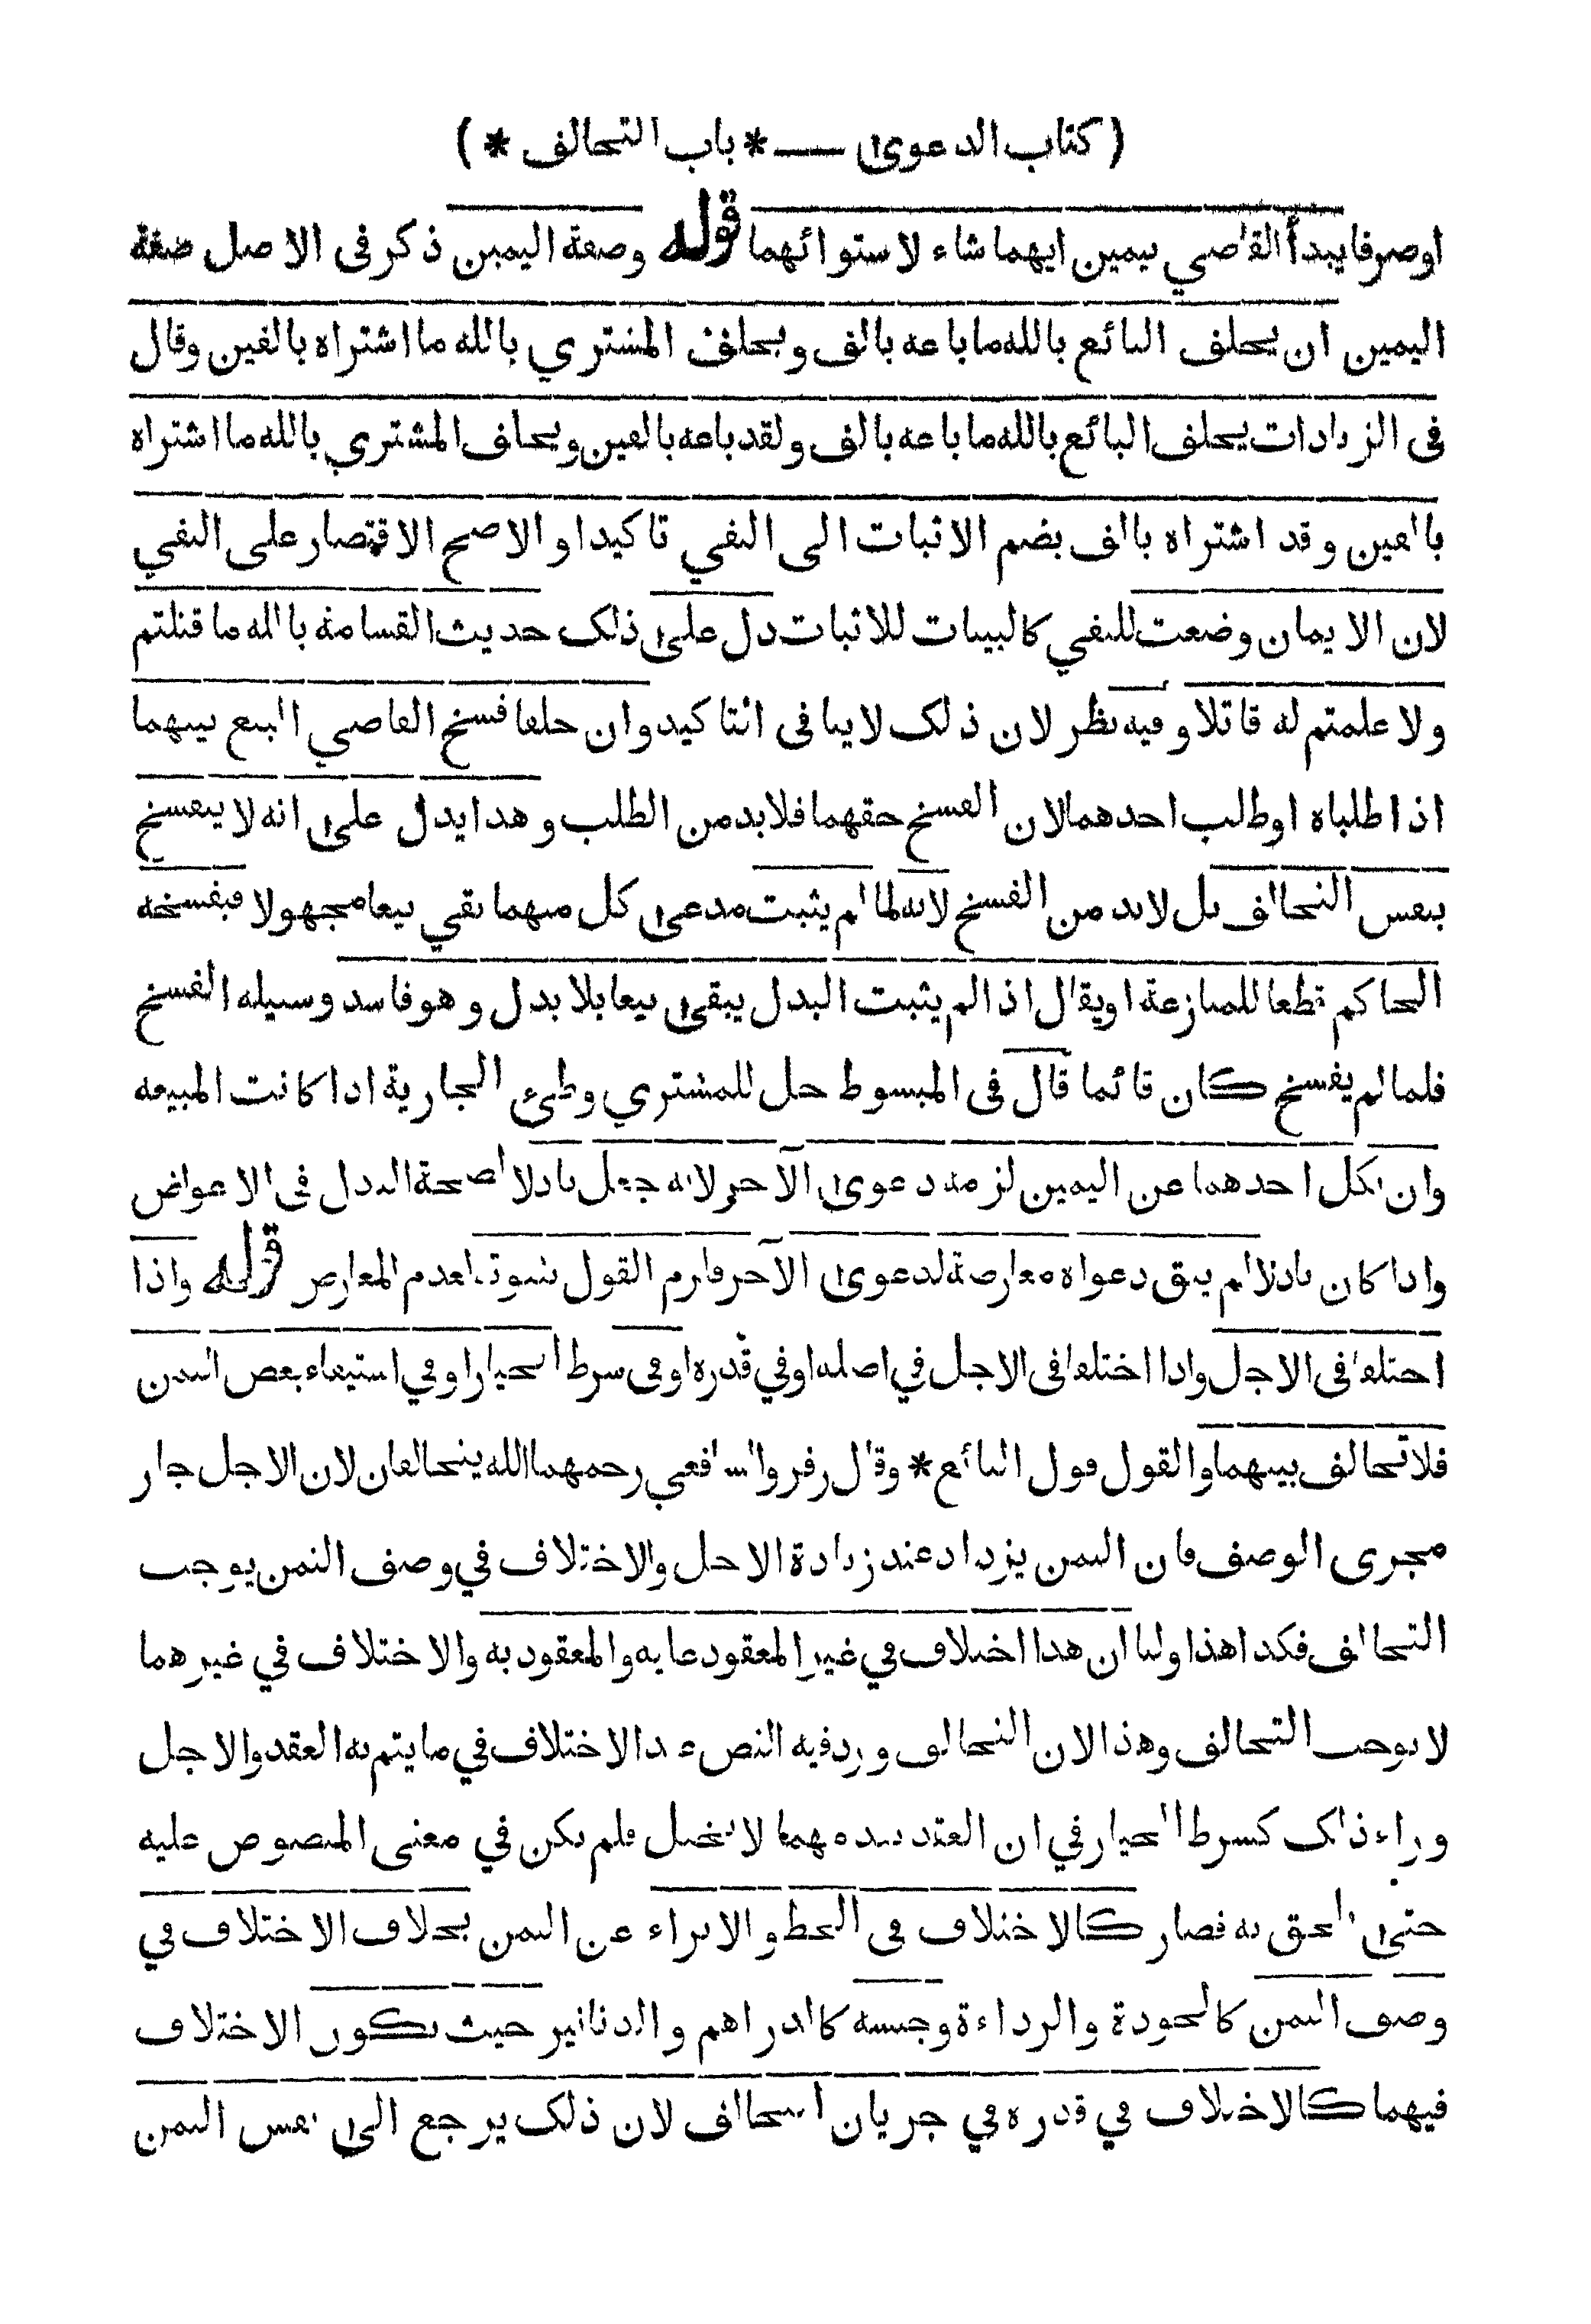 ( كتاب الدعوى — * باب التحالف * )
او صرفا يبدأ القاضي بيمين ايهما شاء لاستوائهما قوله وصفة اليمين ذكر في الاصل صفة
اليمين ان يحلف البائع بالله ما باعه بالف ويحلف المشتري بالله ما اشتراه بالفين وقال
في الزيادات يحلف البائع بالله ما باعه بالف ولقد باعه بالفين ويحلف المشتري بالله ما اشتراه
بالفين وقد اشتراه بالف بضم الاثبات الى النفي تاكيدا والاصح الاقتصار على النفي
لان الايمان وضعت للنفي كالبينات للاثبات دل على ذلك حديث القسامة بالله ما قتلتم
ولا علمتم له قاتلا وفيه نظر لان ذلك لا ينافي التاكيد وان حلفا فسخ القاضي البيع بينهما
اذا طلباه او طلب احدهما لان الفسخ حقهما فلا بد من الطلب وهذا يدل على انه لا ينفسخ
بنفس التحالف بل لا بد من الفسخ لانه لما لم يثبت مدعى كل منهما بقي بيعا مجهولا فيفسخه
الحاكم قطعا للمنازعة او يقال اذا لم يثبت البدل يبقى بيعا بلا بدل وهو فاسد وسبيله الفسخ
فلما لم يفسخ كان قائما قال في المبسوط حل للمشتري وطئ الجارية اذا كانت المبيعه
وان نكل احدهما عن اليمين لزمه دعوى الآخر لانه جعل باذلا لصحة البدل في الاعواض
واذا كان باذلا لم يبق دعواه معارضة لدعوى الآخر فلزم القول بثبوته لعدم المعارض قوله واذا
اختلفا في الاجل واذا اختلفا في الاجل في اصله او في قدره او في شرط الخيار او في استيفاء بعض الثمن
فلا تحالف بينهما والقول قول البائع * وقال زفر والشافعي رحمهما الله يتحالفان لان الاجل جار
مجرى الوصف فان الثمن يزداد عند زيادة الاجل والاختلاف في وصف الثمن يوجب
التحالف فكذا هذا ولنا ان هذا اختلاف في غير المعقود عليه والمعقود به والاختلاف في غيرهما
لا يوجب التحالف وهذا لان التحالف ورد فيه النص عند الاختلاف في ما يتم به العقد والاجل
وراء ذلك كشرط الخيار في ان العقد بعدمهما لا يختل فلم يكن في معنى المنصوص عليه
حتى يلحق به فصار كالاختلاف في الحط والابراء عن الثمن بخلاف الاختلاف في
وصف الثمن كالجودة والرداءة وجنسه كالدراهم والدنانير حيث يكون الاختلاف
فيهما كالاختلاف في قدره في جريان التحالف لان ذلك يرجع الى نفس الثمن